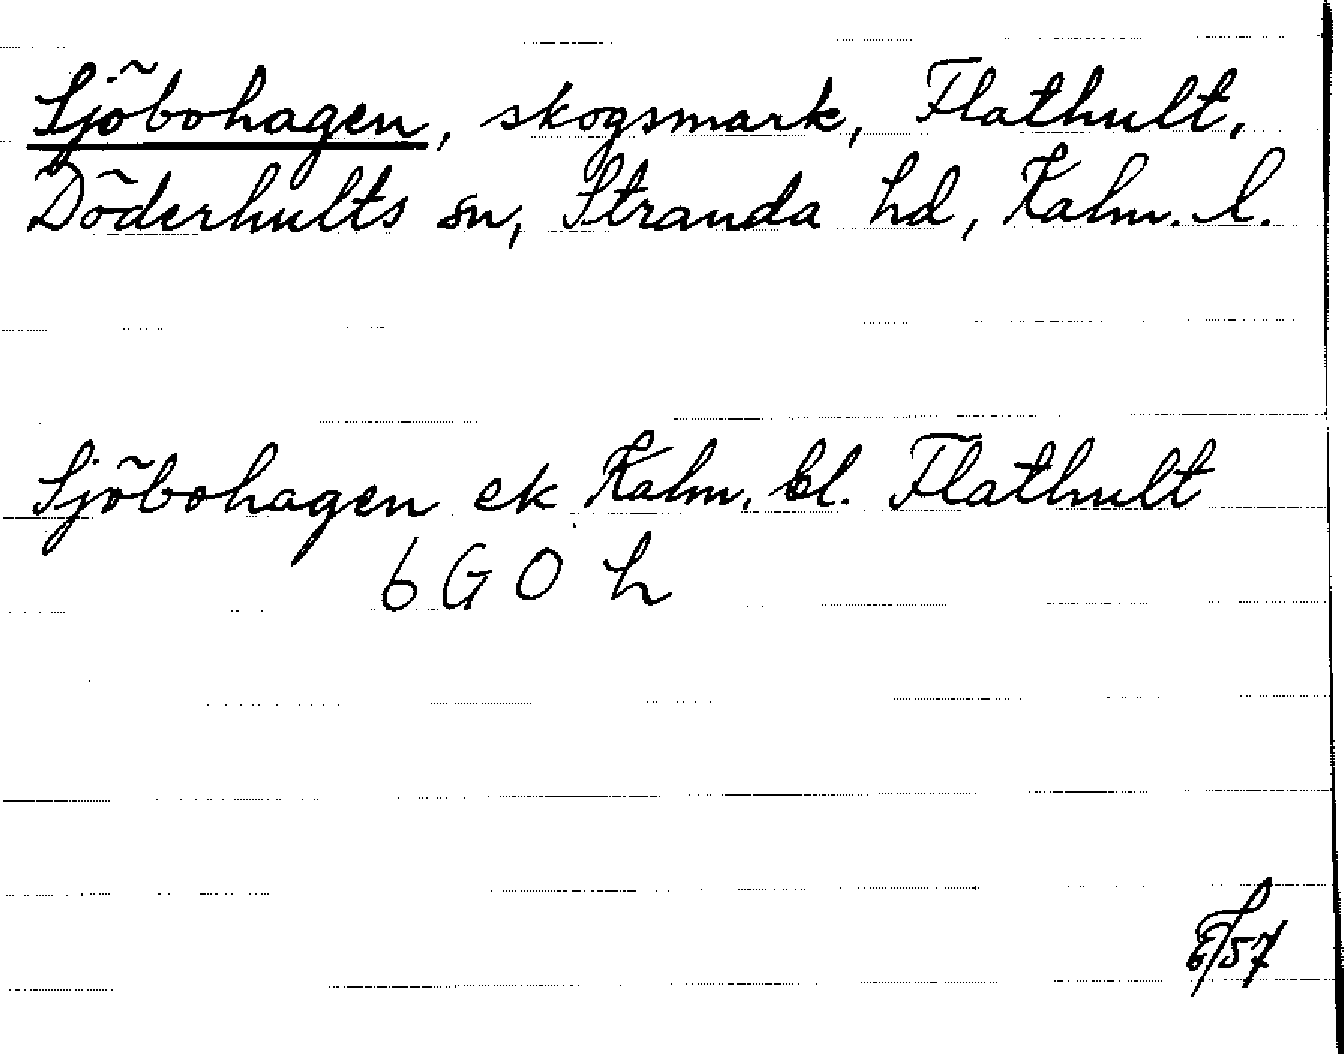 Sjöbohagen, skogsmark, Flathult,
Döderhults sn, Stranda hd, Kalm. l.
Sjöbohagen ek Kalm. bl. Flathult
6 G 0 h
/57